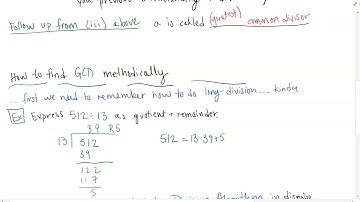 you previous
Follow up from (iii) above a is called (greatest) common divisor
How to find GCD methodically
... first we need to remember how to do long-division .... kinda
Ex Express 512 ÷ 13 as quotient + remainder.
39 R5
13 512 512 = 13·39+5
39
122
117
5